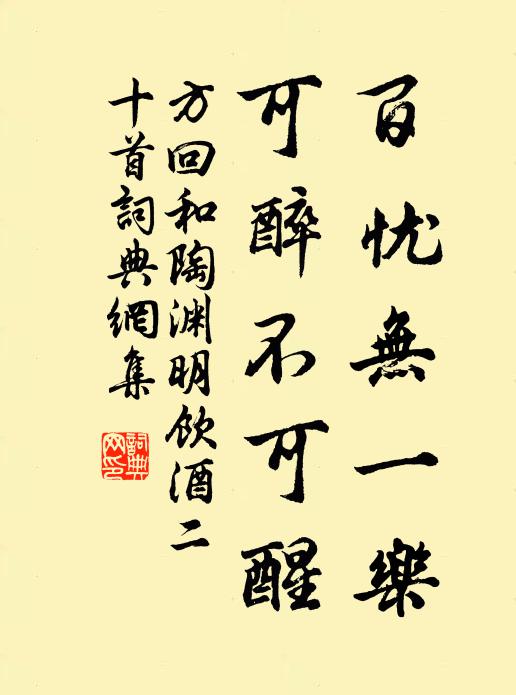 百忧無一樂
可醉不可醒
方回和陶渊明飲酒二
十首詞典網集
詞典网印